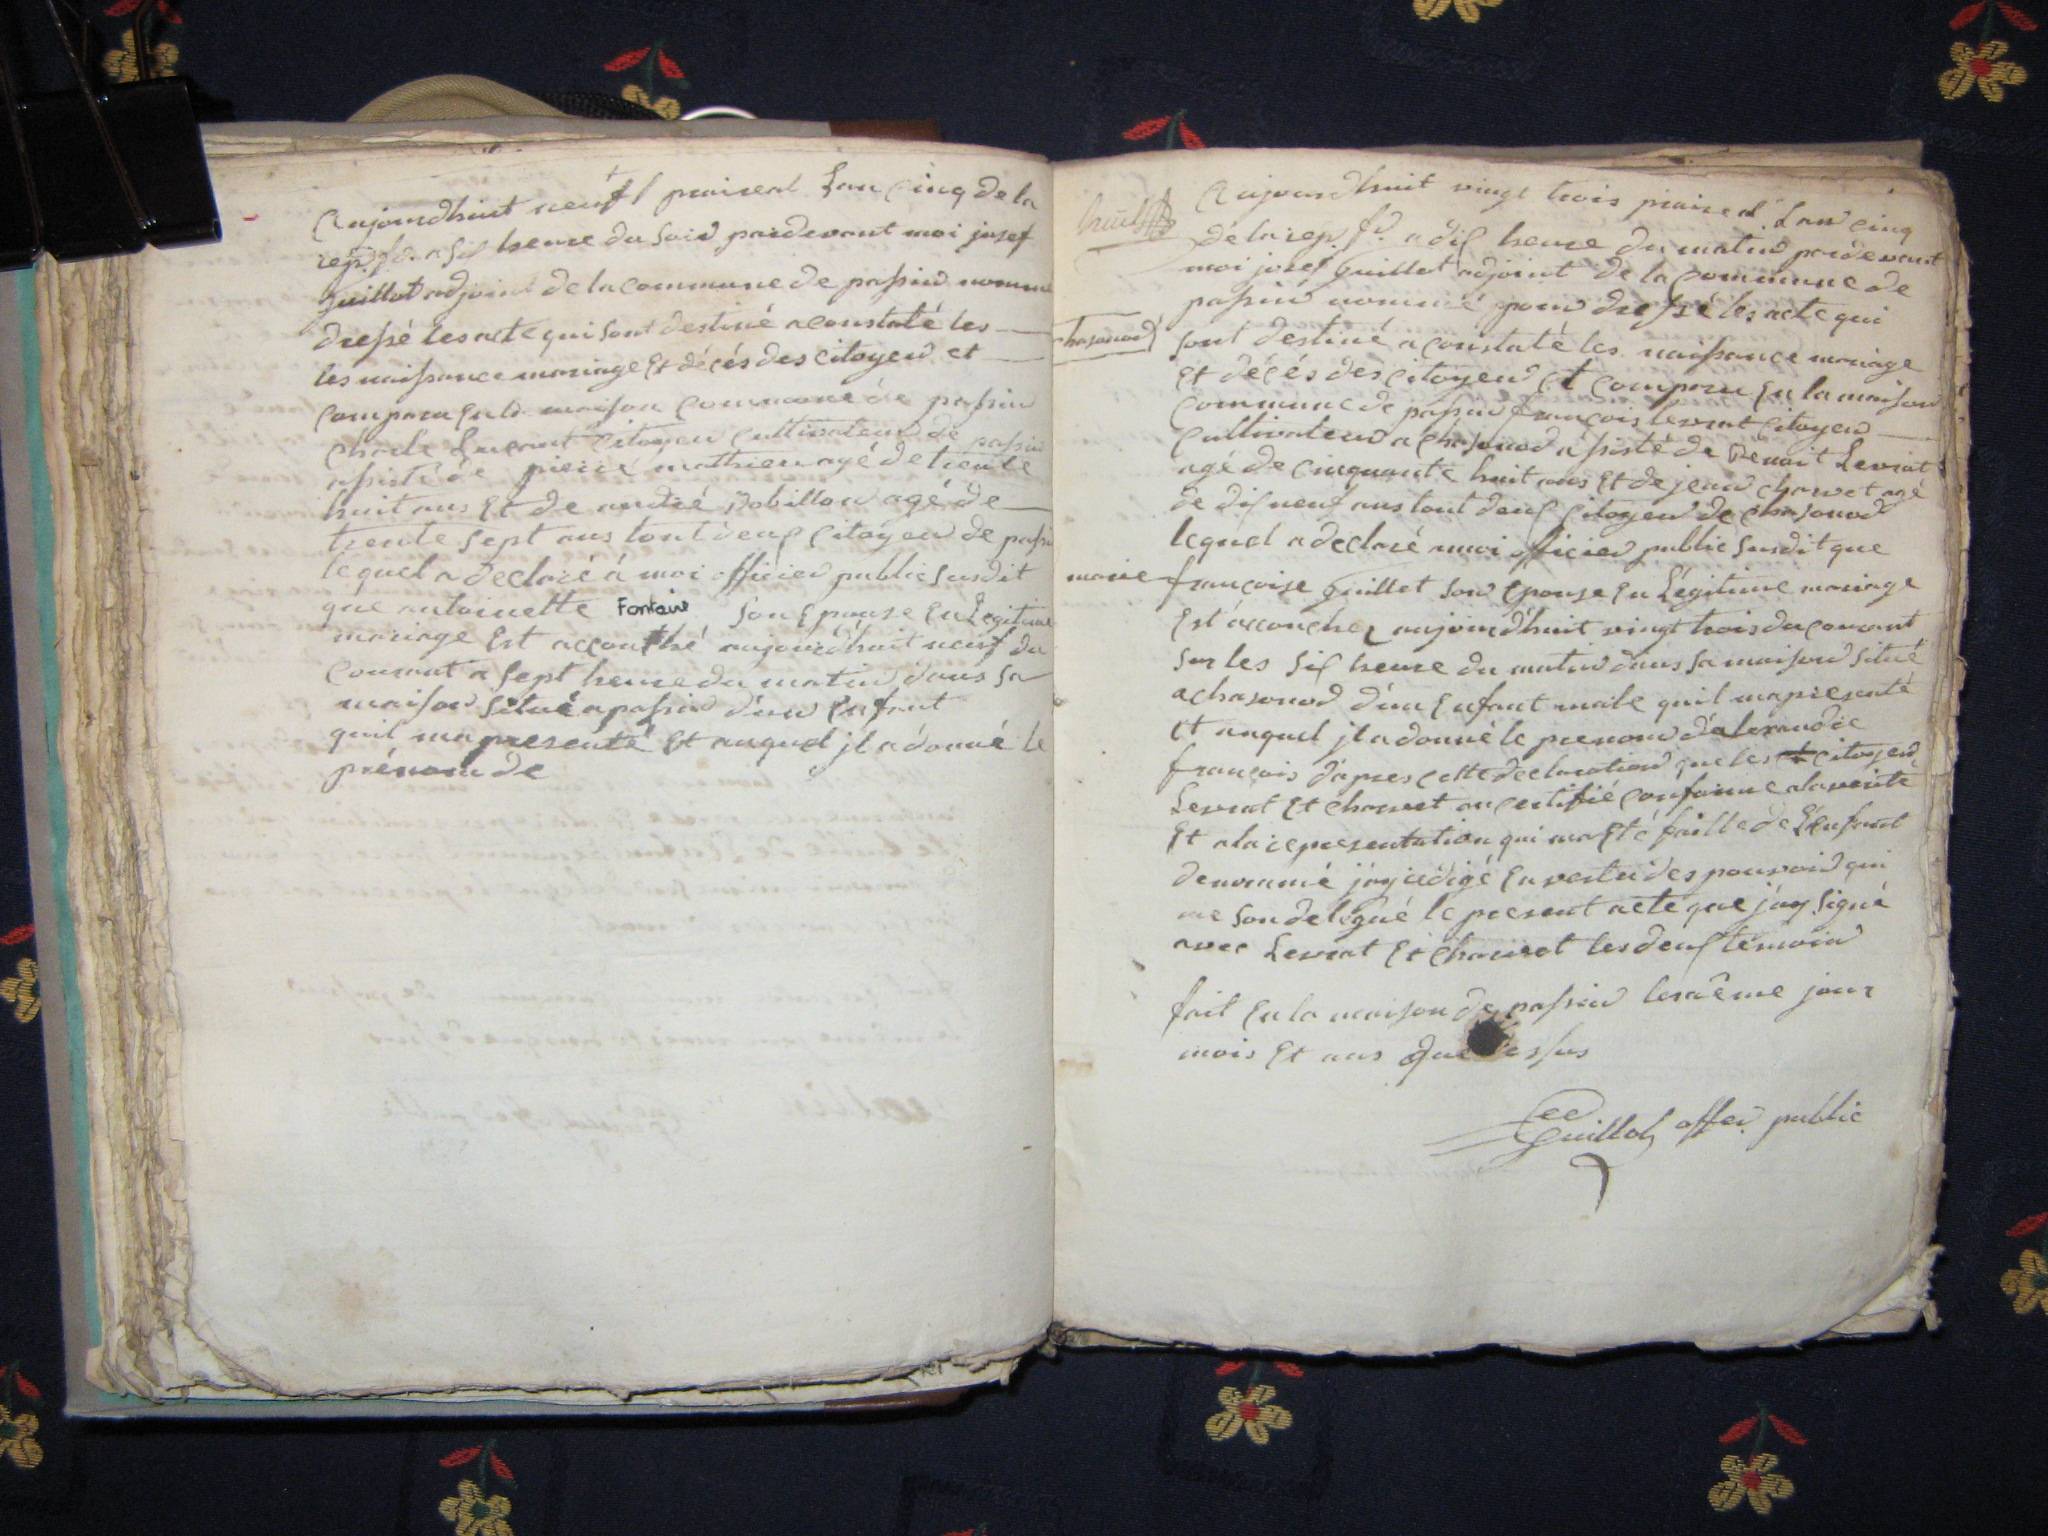 aujourdhuit neuf praireal Lan cinq de la
rep. fr. a sis heure du soir pardevant moi josef
guillot adjoint de la commune de passin nommé
dressé les acte qui sont destiné a constaté les
les naissance mariage Et décés des citoyen et
comparu En la maison commune de passin
charle citoyen cultivateur de passin
assisté de pierre mathieu agé de trente
huit ans Et de andré Robillon agé de
trente sept ans tout deux citoyen de passin
lequel a declaré á moi officier public susdit
que antoinette Fontaine son Epouse En Legitime
mariage Est accouthé aujourdhuit neuf du
courant a sept heure du matin dans sa
maison situé a passin d'un Enfant
quil ma presenté Et auquel jl a donné le
prénom de
aujourdhuit vingt trois praireal Lan cinq
de la rep. fr. a dis heure du matin pardevant
moi josef guillot adjoint de la commune de
passin nommé pour dressé les acte qui
chasonod
sont destiné a constaté les naissance mariage
Et décés des citoyen Et comparu En la maison
commune de passin françois levrat citoyen
cultivateur a chasonod assisté de Benoit Levrat
agé de cinquante huit ans Et de jean charvet agé
de dis neuf ans tout deux citoyen de chasonod
lequel a declaré a moi officier public susdit que
marie françoise guillet son Epouse En Légitime mariage
Est accouchez aujourdhuit vingt trois du courant
sur les sis heure du matin dans sa maison situé
a chasonod d'un Enfant male quil ma presenté
Et auquel jl a donné le prenom d'alexandre
françois d'apres cette declaration que les citoyen
Levrat Et charvet on certifié conforme a la verité
Et a la representation qui ma Eté faitte de L'Enfant
denommé jáy redigé En vertu des pouvoir qui
me son delégué le present acte que jáy signé
avec Levrat Et charvet les deux temoin
fait En la maison de passin le même jour
mois Et ans que dessus
Guillot offier public